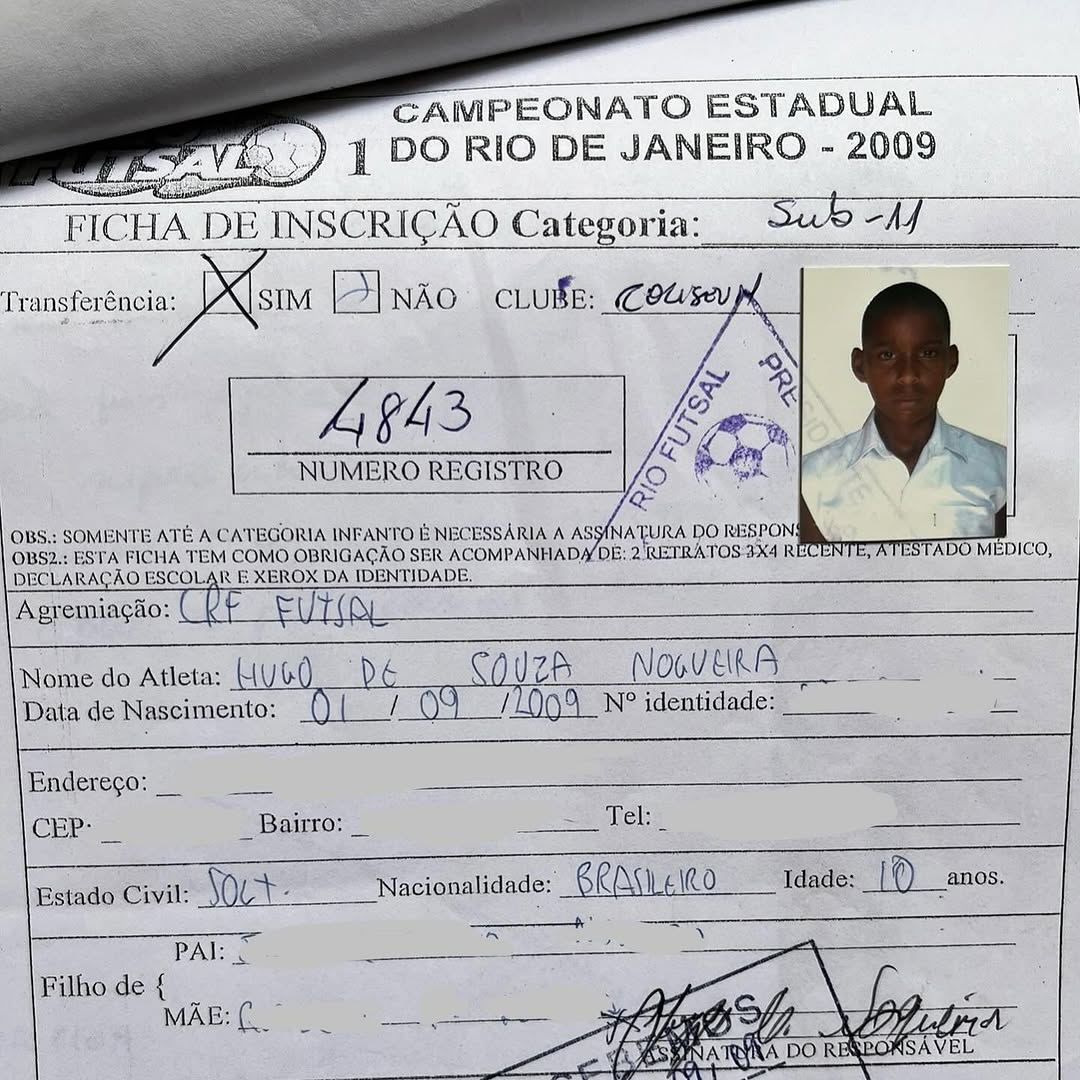 CAMPEONATO ESTADUAL
FUTSAL 1 DO RIO DE JANEIRO - 2009
FICHA DE INSCRIÇÃO Categoria: Sub-11
Transferência: X SIM NÃO CLUBE: COLISEUM
4843
NUMERO REGISTRO
RIO FUTSAL
PRESIDENTE
OBS.: SOMENTE ATÉ A CATEGORIA INFANTO É NECESSÁRIA A ASSINATURA DO RESPONS
OBS2.: ESTA FICHA TEM COMO OBRIGAÇÃO SER ACOMPANHADA DE: 2 RETRATOS 3X4 RECENTE, ATESTADO MÉDICO,
DECLARAÇÃO ESCOLAR E XEROX DA IDENTIDADE.
Agremiação: CRF FUTSAL
Nome do Atleta: HUGO DE SOUZA NOGUEIRA
Data de Nascimento: 01 / 09 / 2009 Nº identidade:
Endereço:
CEP: Bairro: Tel:
Estado Civil: SOLT. Nacionalidade: BRASILEIRO Idade: 10 anos.
PAI:
Filho de {
MÃE:
ASSINATURA DO RESPONSÁVEL